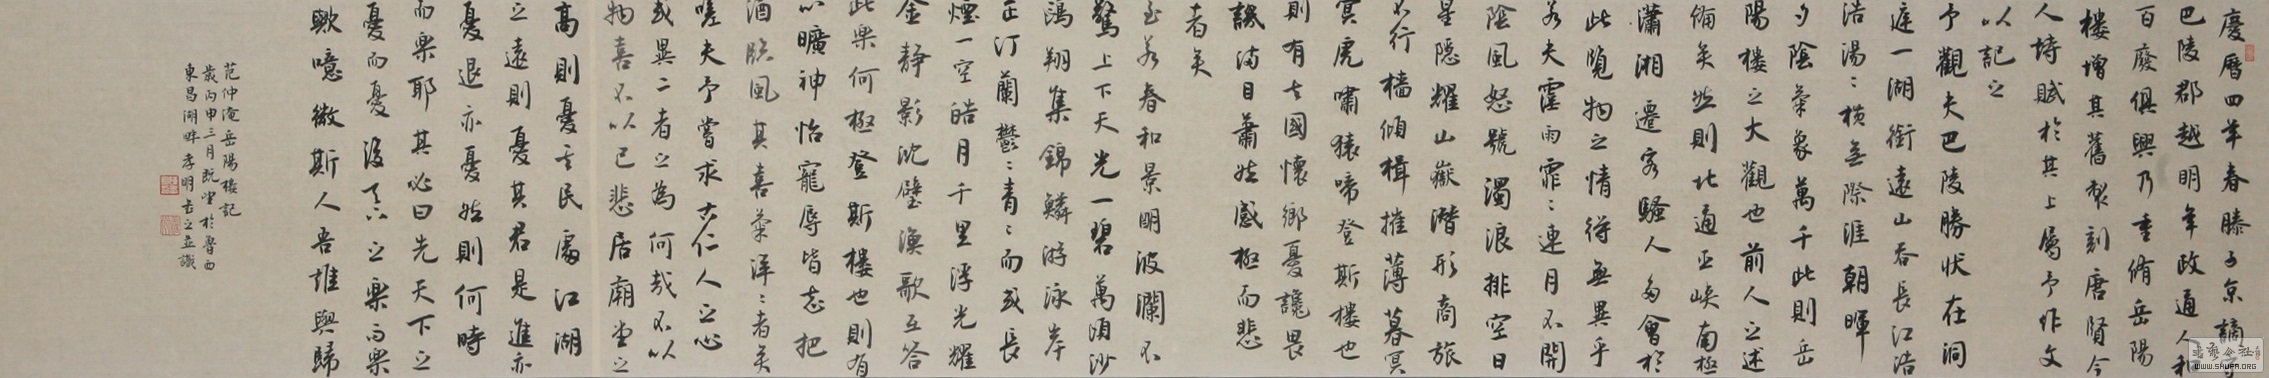 慶曆四年春滕子京謫守
巴陵郡越明年政通人和
百廢俱興乃重脩岳陽
樓增其舊制刻唐賢今
人詩賦於其上屬予作文
以記之
予觀夫巴陵勝狀在洞
庭一湖銜遠山吞長江浩
浩湯〻橫無際涯朝暉
夕陰氣象萬千此則岳
陽樓之大觀也前人之述
備矣然則北通巫峽南極
瀟湘遷客騷人多會於
此覽物之情得無異乎
若夫霪雨霏〻連月不開
陰風怒號濁浪排空日
星隱耀山嶽潛形商旅
不行檣傾楫摧薄暮冥
冥虎嘯猿啼登斯樓也
則有去國懷鄉憂讒畏
譏滿目蕭然感極而悲
者矣
至若春和景明波瀾不
驚上下天光一碧萬頃沙
鷗翔集錦鱗游泳岸
芷汀蘭鬱〻青〻而或長
煙一空皓月千里浮光耀
金靜影沈璧漁歌互答
此樂何極登斯樓也則有
心曠神怡寵辱皆忘把
酒臨風其喜氣洋〻者矣
嗟夫予嘗求古仁人之心
或異二者之為何哉不以
物喜不以己悲居廟堂之
高則憂其民處江湖
之遠則憂其君是進亦
憂退亦憂然則何時
而樂耶其必曰先天下之
憂而憂後天下之樂而樂
歟噫微斯人吾誰與歸
范仲淹岳陽樓記
歲丙申三月既望於魯西
東昌湖畔李明書之並識
WWW.SHUFA.ORG